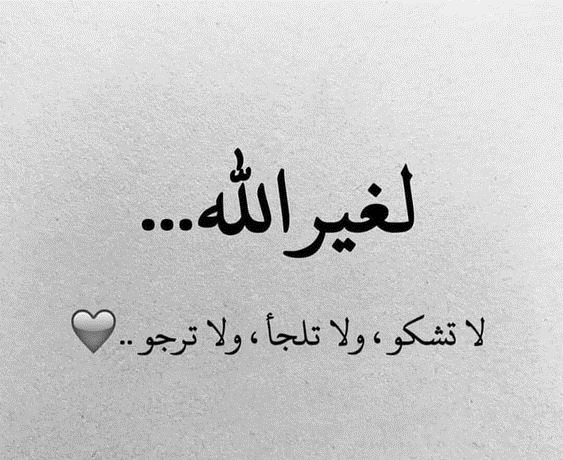 لغير الله...
لا تشكو ، ولا تلجأ ، ولا ترجو ..🩶